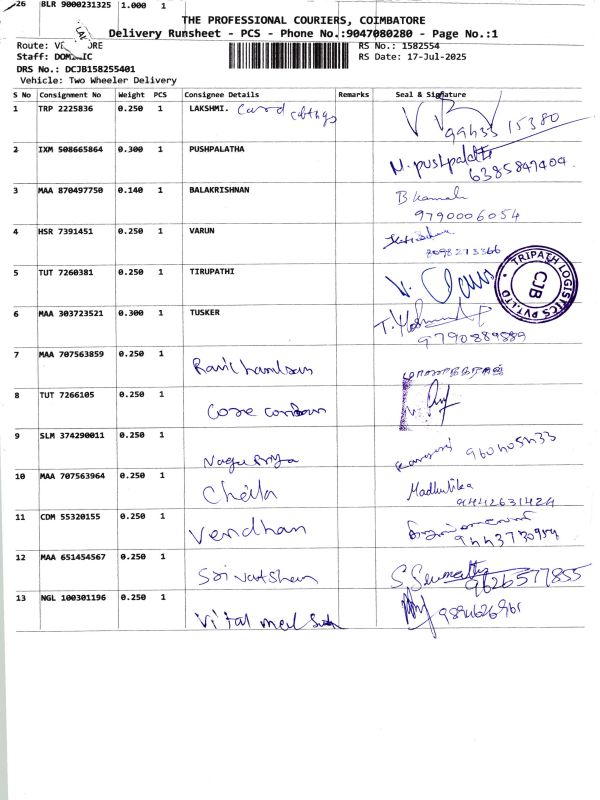 26 BLR 9000231325 1.000 1
THE PROFESSIONAL COURIERS, COIMBATORE
Delivery Runsheet - PCS - Phone No.:9047080280 - Page No.:1
Route: RS No.: 1582554
Staff: RS Date: 17-Jul-2025
DRS No.: DCJB158255401
Vehicle: Two Wheeler Delivery
S No Consignment No Weight PCS Consignee Details Remarks Seal & Signature
1 TRP 2225836 0.250 1 LAKSHMI. Card
15380
2 IXM 508665864 0.300 1 PUSHPALATHA N. pushpalatha
6385849404.
3 MAA 870497750 0.140 1 BALAKRISHNAN B. Kamala
9790006054
4 HSR 7391451 0.250 1 VARUN
8098273366
5 TUT 7260381 0.250 1 TIRUPATHI
TRIPATH LOGISTICS PVT.LTD
CJB
6 MAA 303723521 0.300 1 TUSKER
9790889889
7 MAA 707563859 0.250 1
8 TUT 7266105 0.250 1
9 SLM 374290011 0.250 1
10 MAA 707563964 0.250 1 Cheila Madhutika
9442631424
11 CDM 55320155 0.250 1 Vendhan
12 MAA 651454567 0.250 1 Srivatshan
9626577855
13 NGL 100301196 0.250 1 Vital med
9894626961